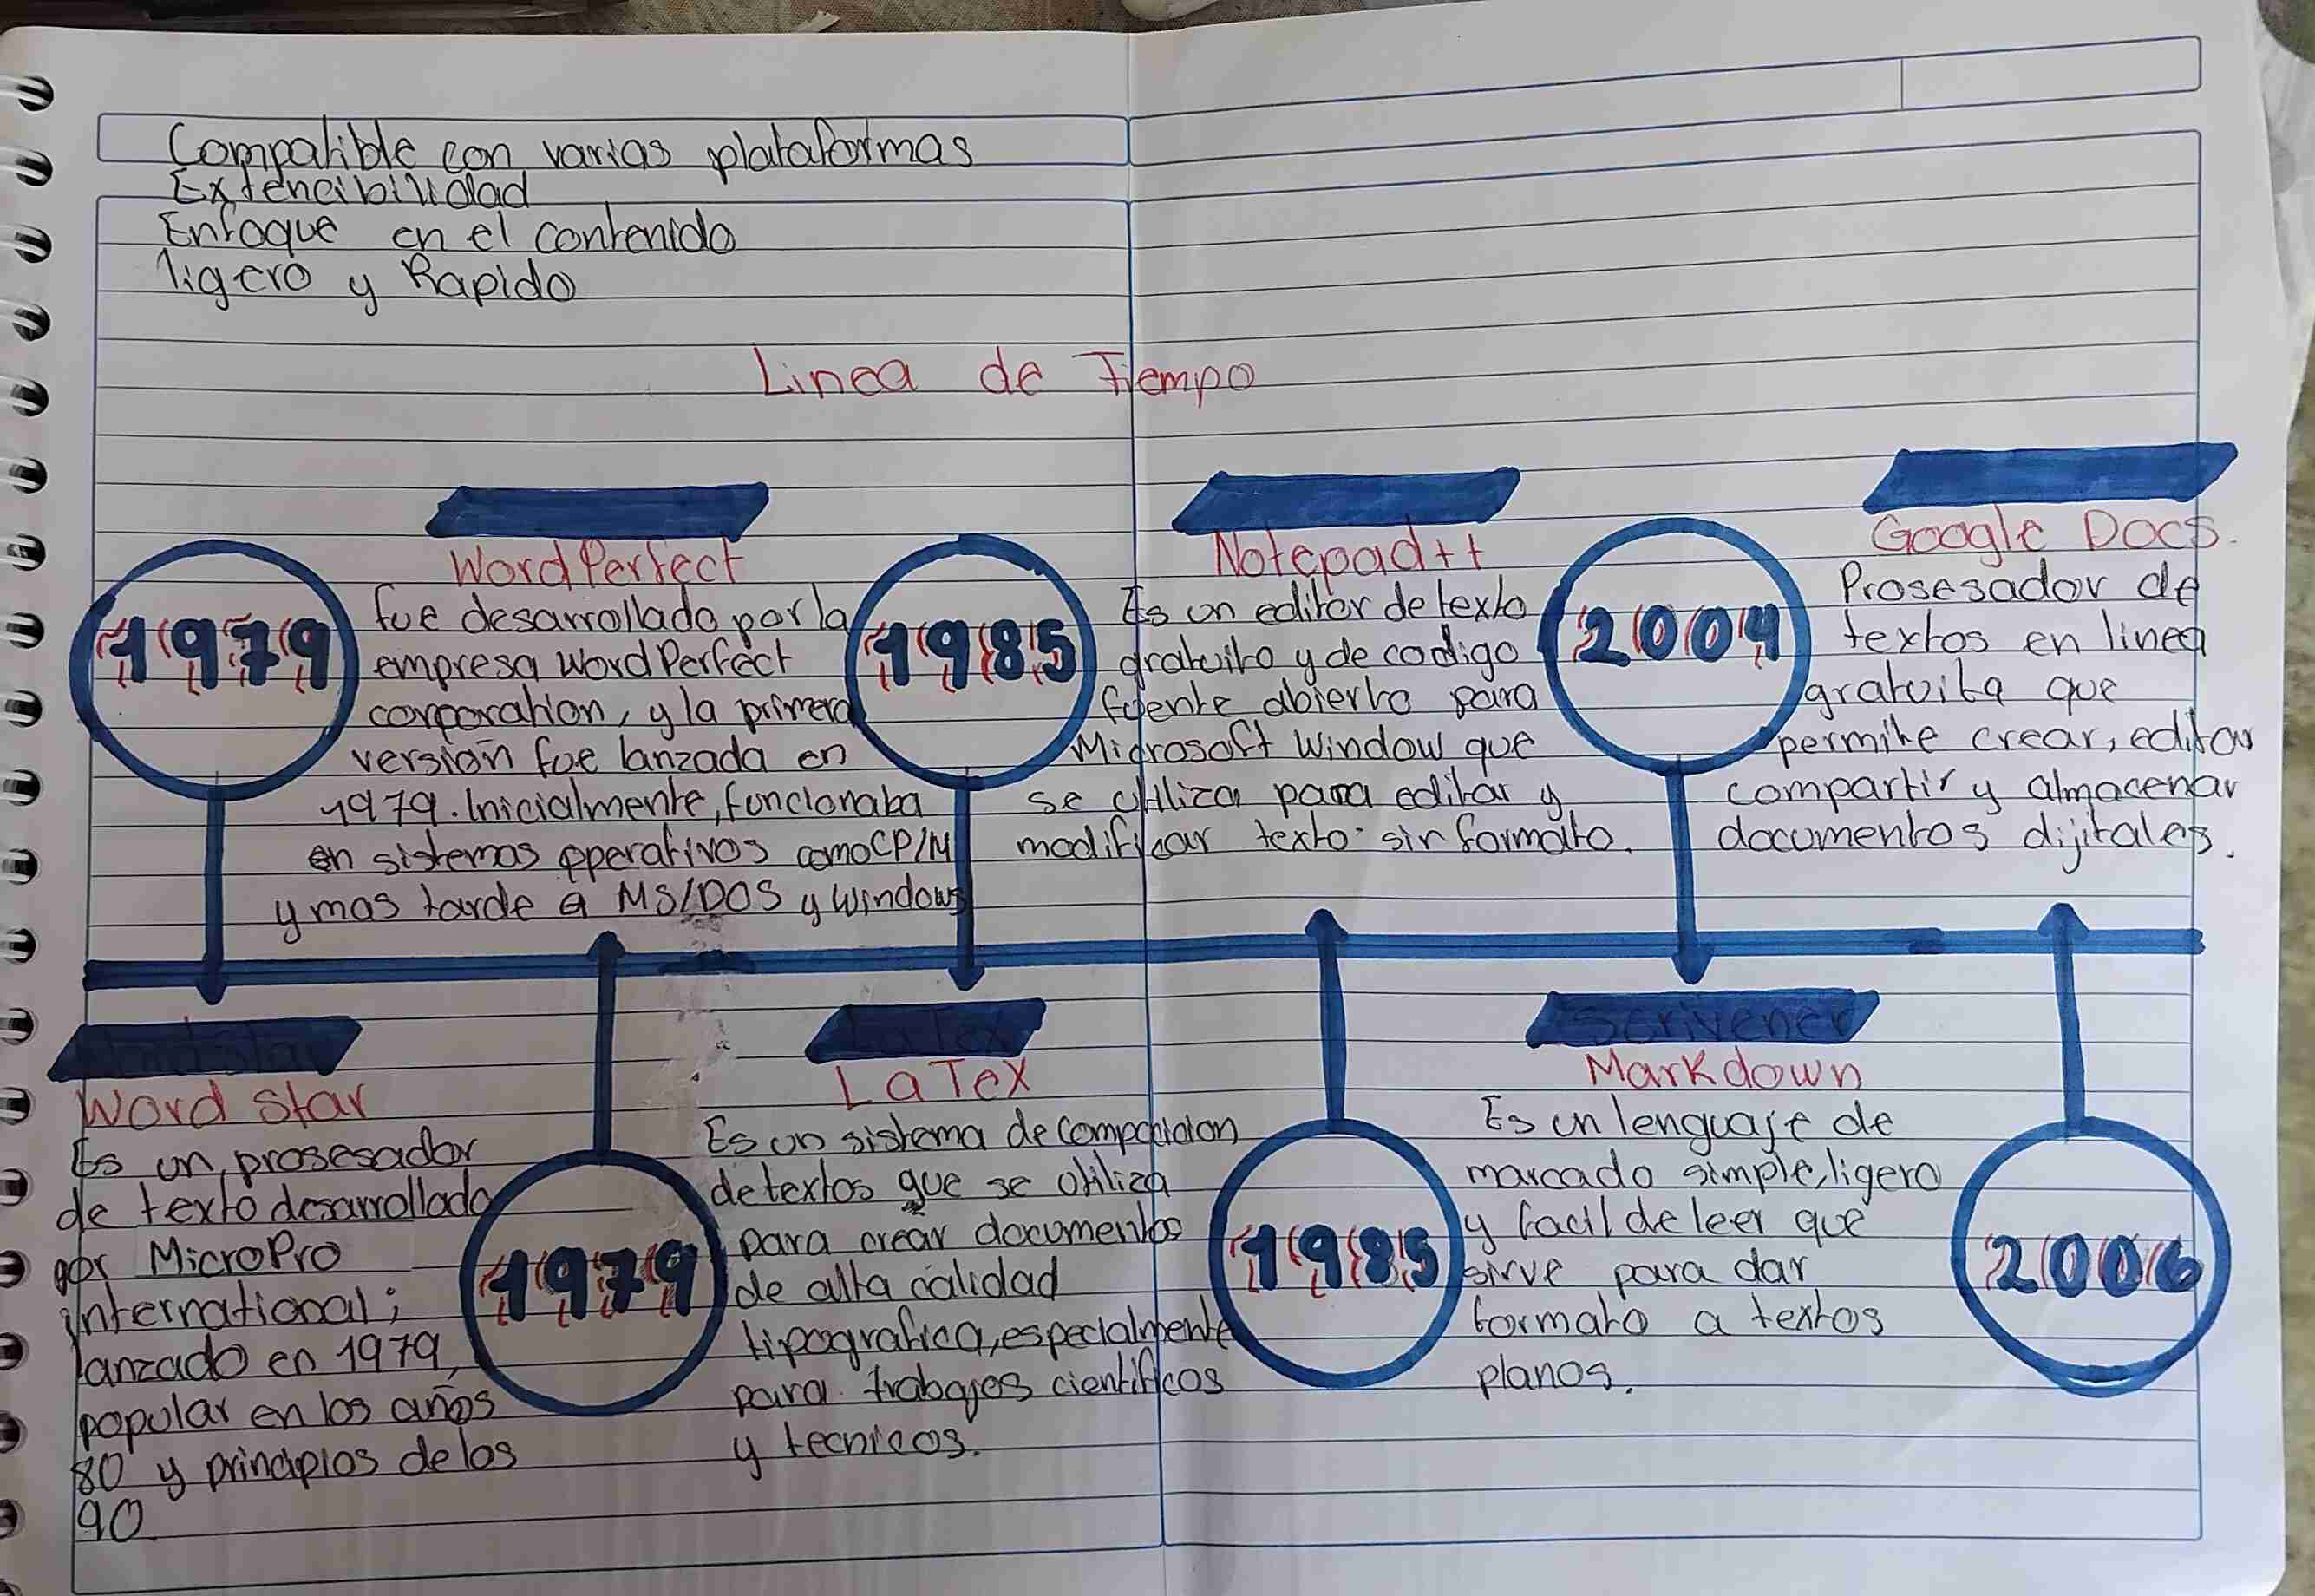 Compatible con varias plataformas
Extencibilidad
Enfoque en el contenido
ligero y Rapido
Linea de Tiempo
1979
WordPerfect
fue desarrollado por la
empresa WordPerfect
corporation, y la primera
versión fue lanzada en
1979. Inicialmente, funcionaba
en sistemas operativos como CP/M
y mas tarde a MS/DOS y Windows
1985
Notepad++
Es un editor de texto
gratuito y de codigo
fuente abierto para
Microsoft Window que
se utiliza para editar y
modificar texto sin formato.
2004
Google Docs.
Prosesador de
textos en linea
gratuita que
permite crear, editar
compartir y almacenar
documentos dijitales.
WordStar
Word Star
Es un prosesador
de texto desarrollado
por MicroPro
international;
lanzado en 1979,
popular en los años
80 y principios de los
90
1979
LaTex
LaTex
Es un sistema de
de textos que se utiliza
para crear documentos
de alta calidad
tipografica, especialmente
para trabajos cientificos
y tecnicos.
1985
Scrivener
Markdown
Es un lenguaje de
marcado simple, ligero
y facil de leer que
sirve para dar
formato a textos
planos.
2006